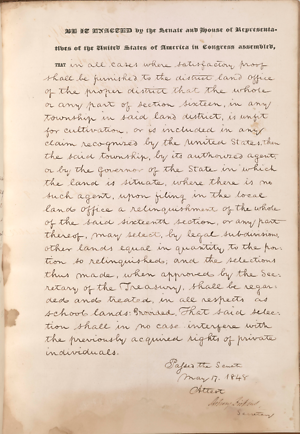 BE IT ENACTED by the Senate and House of Representa-
tives of the United States of America in Congress assembled,
THAT in all cases where satisfactory proof
shall be furnished to the district land office
of the proper district that the whole
or any part of section sixteen, in any
township in said land district, is unfit
for cultivation, or is included in any
claim recognized by the United States, then
the said township, by its authorized agent,
or by the governor of the State in which
the land is situate, where there is no
such agent, upon filing in the local
land office a relinquishment of the whole
of the said sixteenth section, or any part
thereof, may select, by legal subdivision,
other lands equal in quantity, to the por-
tion so relinquished; and the selections
thus made, when approved by the Sec-
retary of the Treasury, shall be regar-
ded and treated, in all respects as
school lands: Provided, That said selec-
tion shall in no case interfere with
the previously acquired rights of private
individuals.
Passed the Senate
May 17, 1848
Attest
Secretary